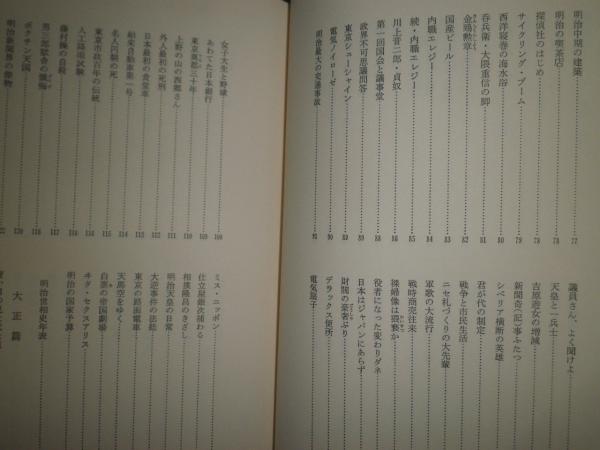 明治中期の建築 77
明治の喫茶店 78
探偵社のはじめ 78
サイクリング・ブーム 79
西洋寝巻の海水浴 79
呑兵衛・大隈重信の脚 80
金鵄勲章 81
国産ビール 82
内職エレジー 83
続・内職エレジー 84
川上音二郎・貞奴 85
第一回国会と議事堂 86
政界不可思議問答 88
東京シューシャイン 89
電気ノイローゼ 90
明治最大の交通事故 91
議員さん、よく聞けよ
天皇と一兵士
吉原遊女の増減
新聞奇(記)事ふたつ
シベリア横断の英雄
君が代の制定
戦争と市民生活
ニセ札づくりの大先輩
軍歌の大流行
戦時商売往来
裸婦像は猥褻か
役者になった変わりダネ
日本はジャパンにあらず
財閥の豪奢ぶり
デラックス便所
電気扇子
女子大生と野球 108
あわてた日本銀行 109
東京奠都三十年 110
上野の山の西郷さん 111
外人最初の死刑 112
日本最初の食堂車 113
舶来自動車第一号 114
名人円朝の死 115
東京市政百年の伝統
人工降雨試験
藤村操の自殺 117
男三郎獄舎の懺悔 118
ボクサン天国 120
明治新聞界の傑物
ミス・ニッポン
仕立屋銀次捕わる
相撲隆昌のきざし
明治天皇の日常
大逆事件の法廷
東京の路面電車
天馬空をゆく
白亜の帝国劇場
キタ・セクスアリス
明治の国家予算
明治世相史年表
大正篇